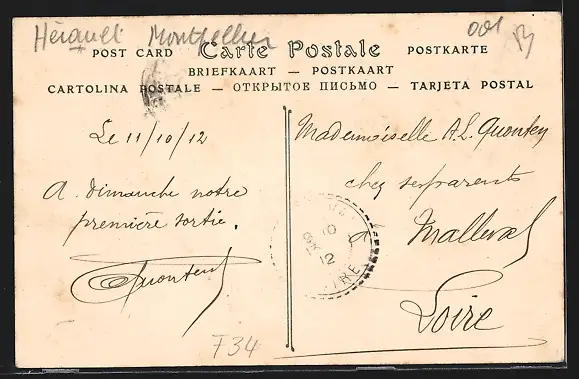 Hérault Montpellier
001
POST CARD Carte Postale POSTKARTE
BRIEFKAART — POSTKAART
CARTOLINA POSTALE — ОТКРЫТОЕ ПИСЬМО — TARJETA POSTAL
Le 11/10/12
A dimanche notre
première sortie.
Mademoiselle A.L. Quonten
chez ses parents
à Malleval
Loire
10
12
F34